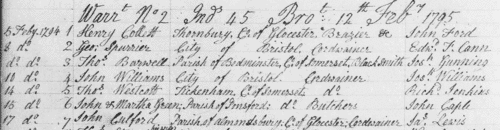 Warrt. No 2 Ind 45 Brot. 12th Feby 1795
5 Feby. 1794 1 Henry Collett Thornbury, C. of Glocester Brazier &c John Ford
8 do. 2 Geo. Spurrier City of Bristol. Cordwainer Edwd. T. Cann
do do. 3 Thos. Barwell Parish of Bedminster, C. of Somerset, Black Smith Jos. Gunning
10 do. 4 John Williams City of Bristol. Cordwainer Jos. Williams
14 do 5 Thos. Westcott Tickenham, C. of Somerset do. Richd. Jenkins
15 do. 6 John & Martha Green; Parish of Pensford; do. Butchers John Cagle
17 do. 7 John Culford, Parish of Almondsbury; C. of Glocester; Cordwainer Jas. Lewis